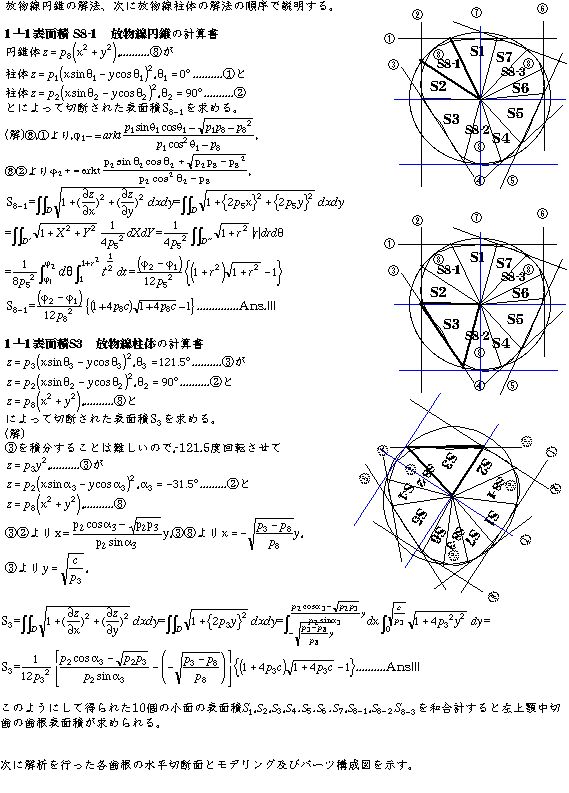 放物線円錐の解法、次に放物線柱体の解法の順序で説明する。
1┴1表面積 S8-1　放物線円錐の計算書
円錐体 z = p₈(x² + y²),..........⑧が
柱体 z = p₁(x sin θ₁ − y cos θ₁)², θ₁ = 0° ..........①と
柱体 z = p₂(x sin θ₂ − y cos θ₂)², θ₂ = 90° ..........②
とによって切断された表面積 S₈₋₁を求める。
(解)⑧,①より, φ₁ − = arkt (p₁ sin θ₁ cos θ₁ − √(p₁p₈ − p₈²)) / (p₁ cos² θ₁ − p₈) ,
⑧②より φ₂ + = arkt (p₂ sin θ₂ cos θ₂ + √(p₂p₈ − p₈²)) / (p₂ cos² θ₂ − p₈) ,
S₈₋₁ = ∬_D √(1 + (∂z/∂x)² + (∂z/∂y)²) dxdy = ∬_D √(1 + {2p₅x}² + {2p₅y}²) dxdy
= ∬_D' √(1 + X² + Y²) 1/(4p₅²) dXdY = 1/(4p₅²) ∬_D'' √(1 + r²) |r| drdθ
= 1/(8p₅²) ∫_φ₁^φ₂ dθ ∫_1^(1+r²) t^(1/2) dt = (φ₂ − φ₁)/(12p₅²) {(1 + r²)√(1 + r²) − 1}
S₈₋₁ = (φ₂ − φ₁)/(12p₈²) {(1 + 4p₈c)√(1 + 4p₈c) − 1}..............Ans.|||
1┴1表面積S3　放物線柱体の計算書
z = p₃(x sin θ₃ − y cos θ₃)², θ₃ = 121.5° ..........③が
z = p₂(x sin θ₂ − y cos θ₂)², θ₂ = 90° ..........②と
z = p₈(x² + y²),..........⑧と
によって切断された表面積 S₃を求める。
(解)
③を積分することは難しいので,-121.5度回転させて
z = p₃y²,..........③が
z = p₂(x sin α₃ − y cos α₃)², α₃ = −31.5° ........②と
z = p₈(x² + y²),..........⑧
③②より x = (p₂ cos α₃ − √(p₂p₃)) / (p₂ sin α₃) y,③⑧より x = −√((p₃ − p₈)/p₈) y,
③より y = √(c/p₃) ,
S₃ = ∬_D √(1 + (∂z/∂x)² + (∂z/∂y)²) dxdy = ∬_D √(1 + {2p₃y}²) dxdy = ∫_(−√((p₃−p₈)/p₈) y)^((p₂ cos α₃ − √(p₂p₃))/(p₂ sin α₃) y) dx ∫_0^√(c/p₃) √(1 + 4p₃²y²) dy =
S₃ = 1/(12p₃²) [(p₂ cos α₃ − √(p₂p₃))/(p₂ sin α₃) − (−√((p₃ − p₈)/p₈))] {(1 + 4p₃c)√(1 + 4p₃c) − 1}..........Ans|||
このようにして得られた10個の小面の表面積S₁,S₂,S₃,S₄,S₅,S₆,S₇,S₈₋₁,S₈₋₂,S₈₋₃を和合計すると左上顎中切
歯の歯根表面積が求められる。
次に解析を行った各歯根の水平切断面とモデリング及びパーツ構成図を示す。
② ⑦ ⑥
① S1 S7
⑧ S8-1 ⑧ S8-3
③ S2 S6
S3 S8-2 S5
⑧ S4
④ ⑤
② ⑦ ⑥
① S1 S7
S8-1 ⑧ S8-3
③ S2 S6
S3 S8-2 S5
⑧ S4
④ ⑤
S3 S2
S4 S8-2 S8-1
S5 S1
S6 S8-3 S7